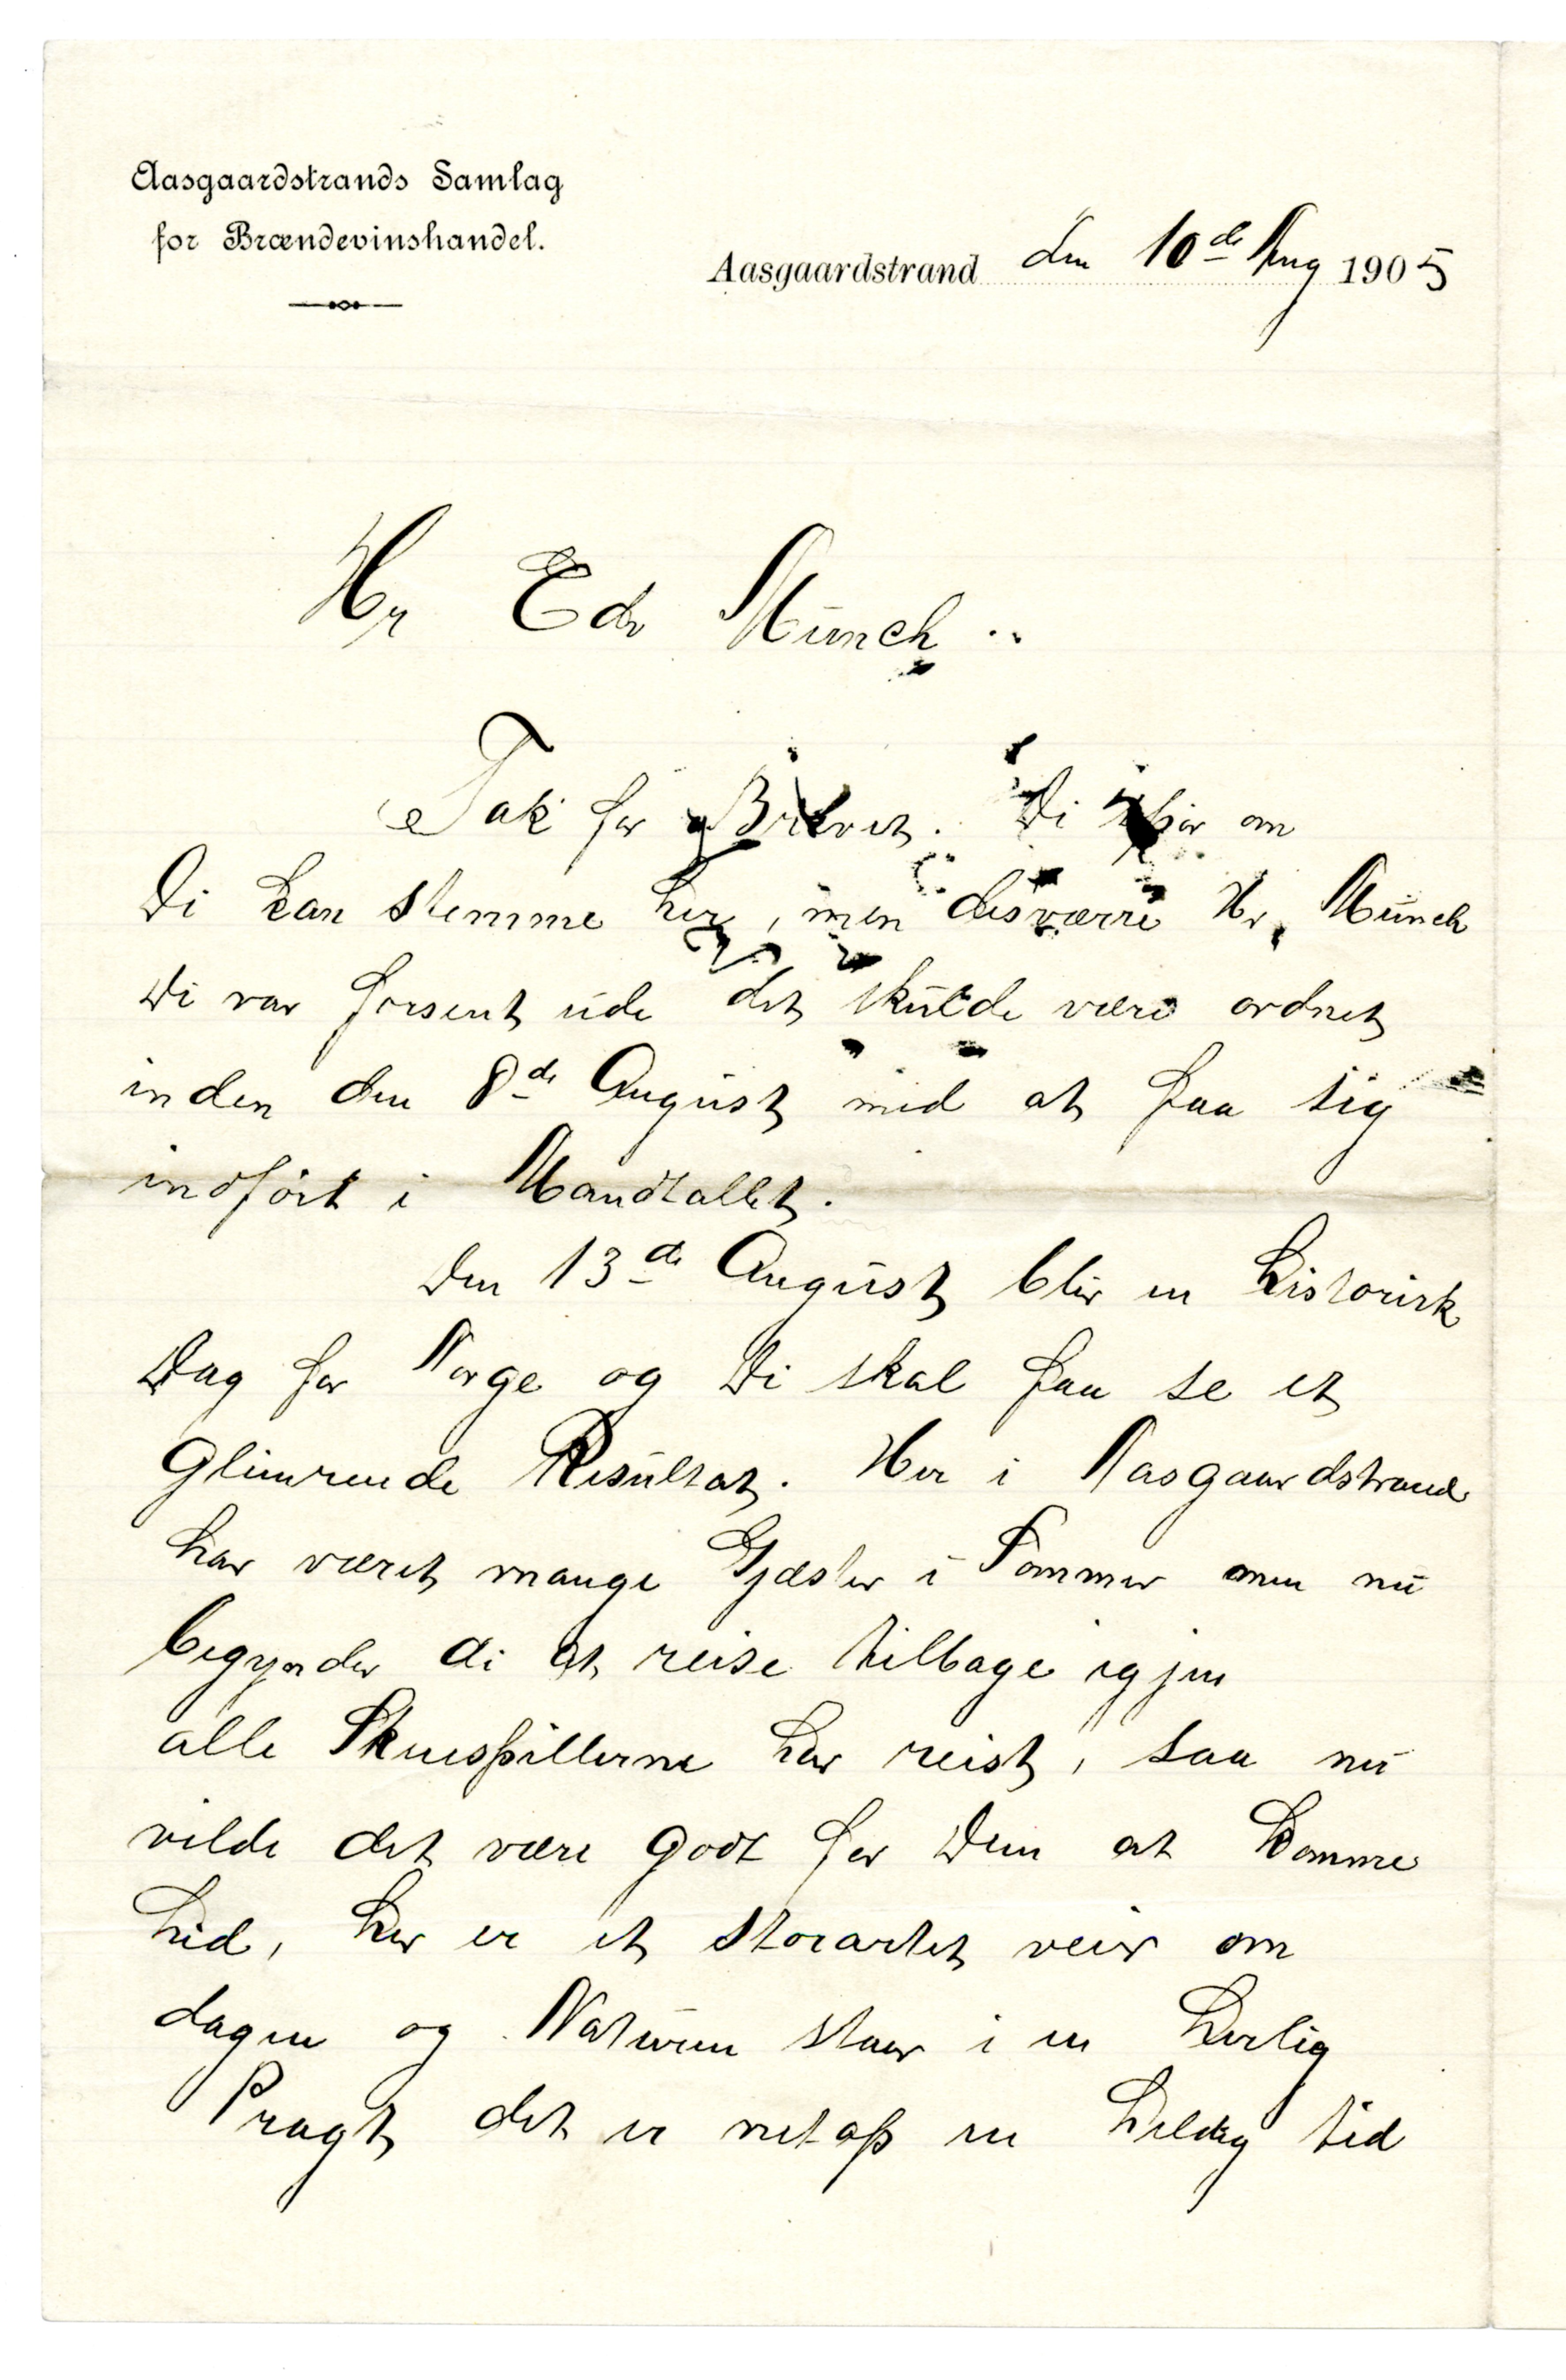 Aasgaardstrands Samlag
for Brændevinshandel.
Aasgaardstrand den 10de Aug 1905
Hr Edv Munch ..
Tak for Brevet. Di om
Di kan stemme her, men desværre Hr. Munch
Di var forsent ude det skulde være ordnet
inden den 8de August med at faa sig
indført i Mandtallet.
Den 13de August blir en historisk
Dag for Norge og Di skal faa se et
Glimrende Resultat. Her i Aasgaardstrand
har været mange Gjæster i Sommer men nu
begynder di at reise tilbage igjen
alle Skuespillerne har reist, saa nu
vilde det være godt for Dem at komme
hid, her er et storartet veir om
dagen og Naturen staar i en herlig
Pragt, det er netop en heldig tid